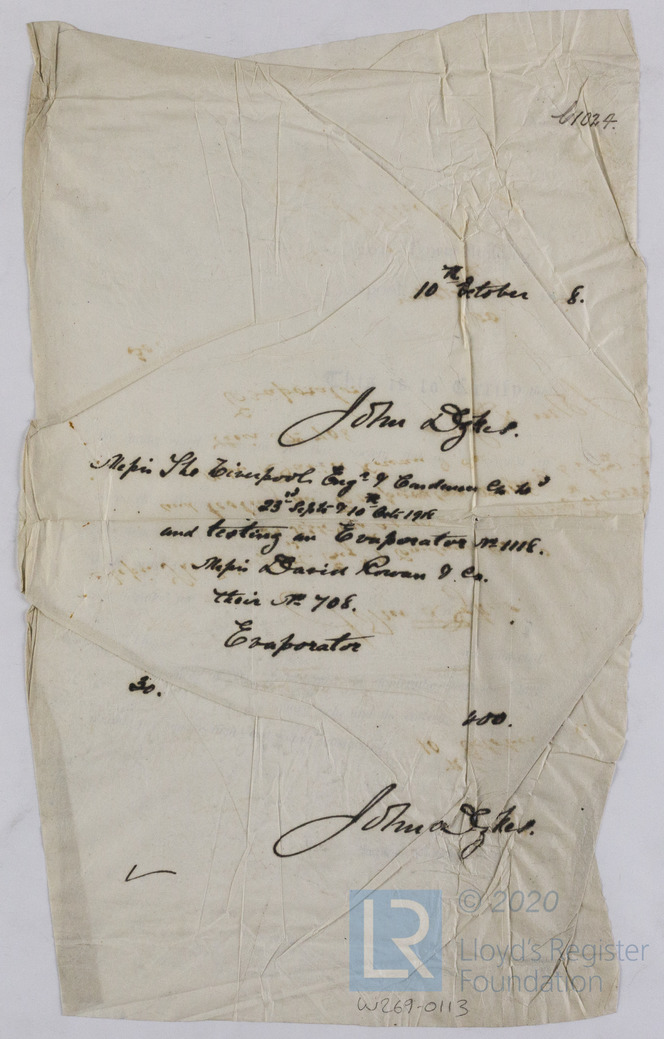 61024.
10th October 8.
John Dykes.
Messrs The Liverpool Engr & Condenser Co Ltd
23rd Sept & 10th Oct 1918
and testing an Evaporator No 1118.
Messrs David Rowan & Co.
their No 708.
Evaporator
30.
400.
John Dykes.
LR
© 2020
Lloyd's Register
Foundation
W269-0113